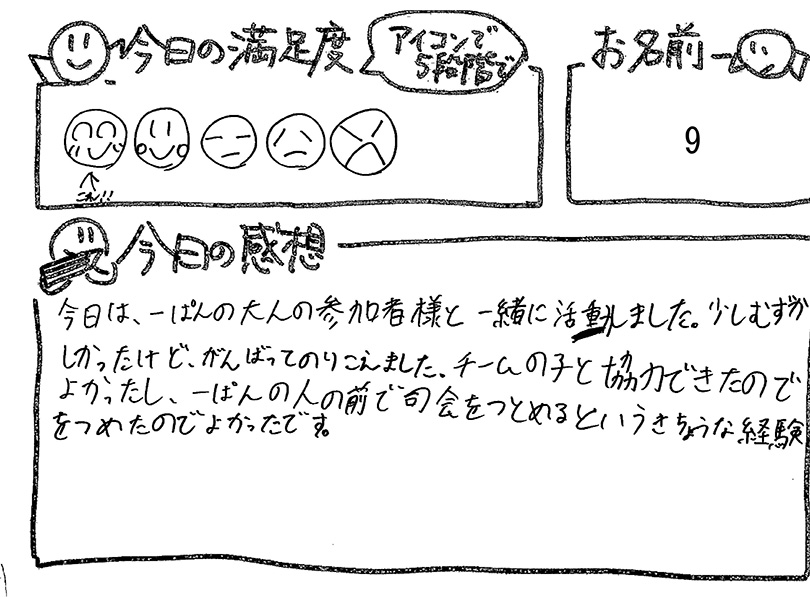 今日の満足度
アイコンで
5段階で
お名前
9
これ!!
今日の感想
今日は、一ぱんの大人の参加者様と一緒に活動しました。少しむずか
しかったけど、がんばってのりこえました。チームの子と協力できたので
よかったし、一ぱんの人の前で司会をつとめるというきちょうな経験
をつめたのでよかったです。